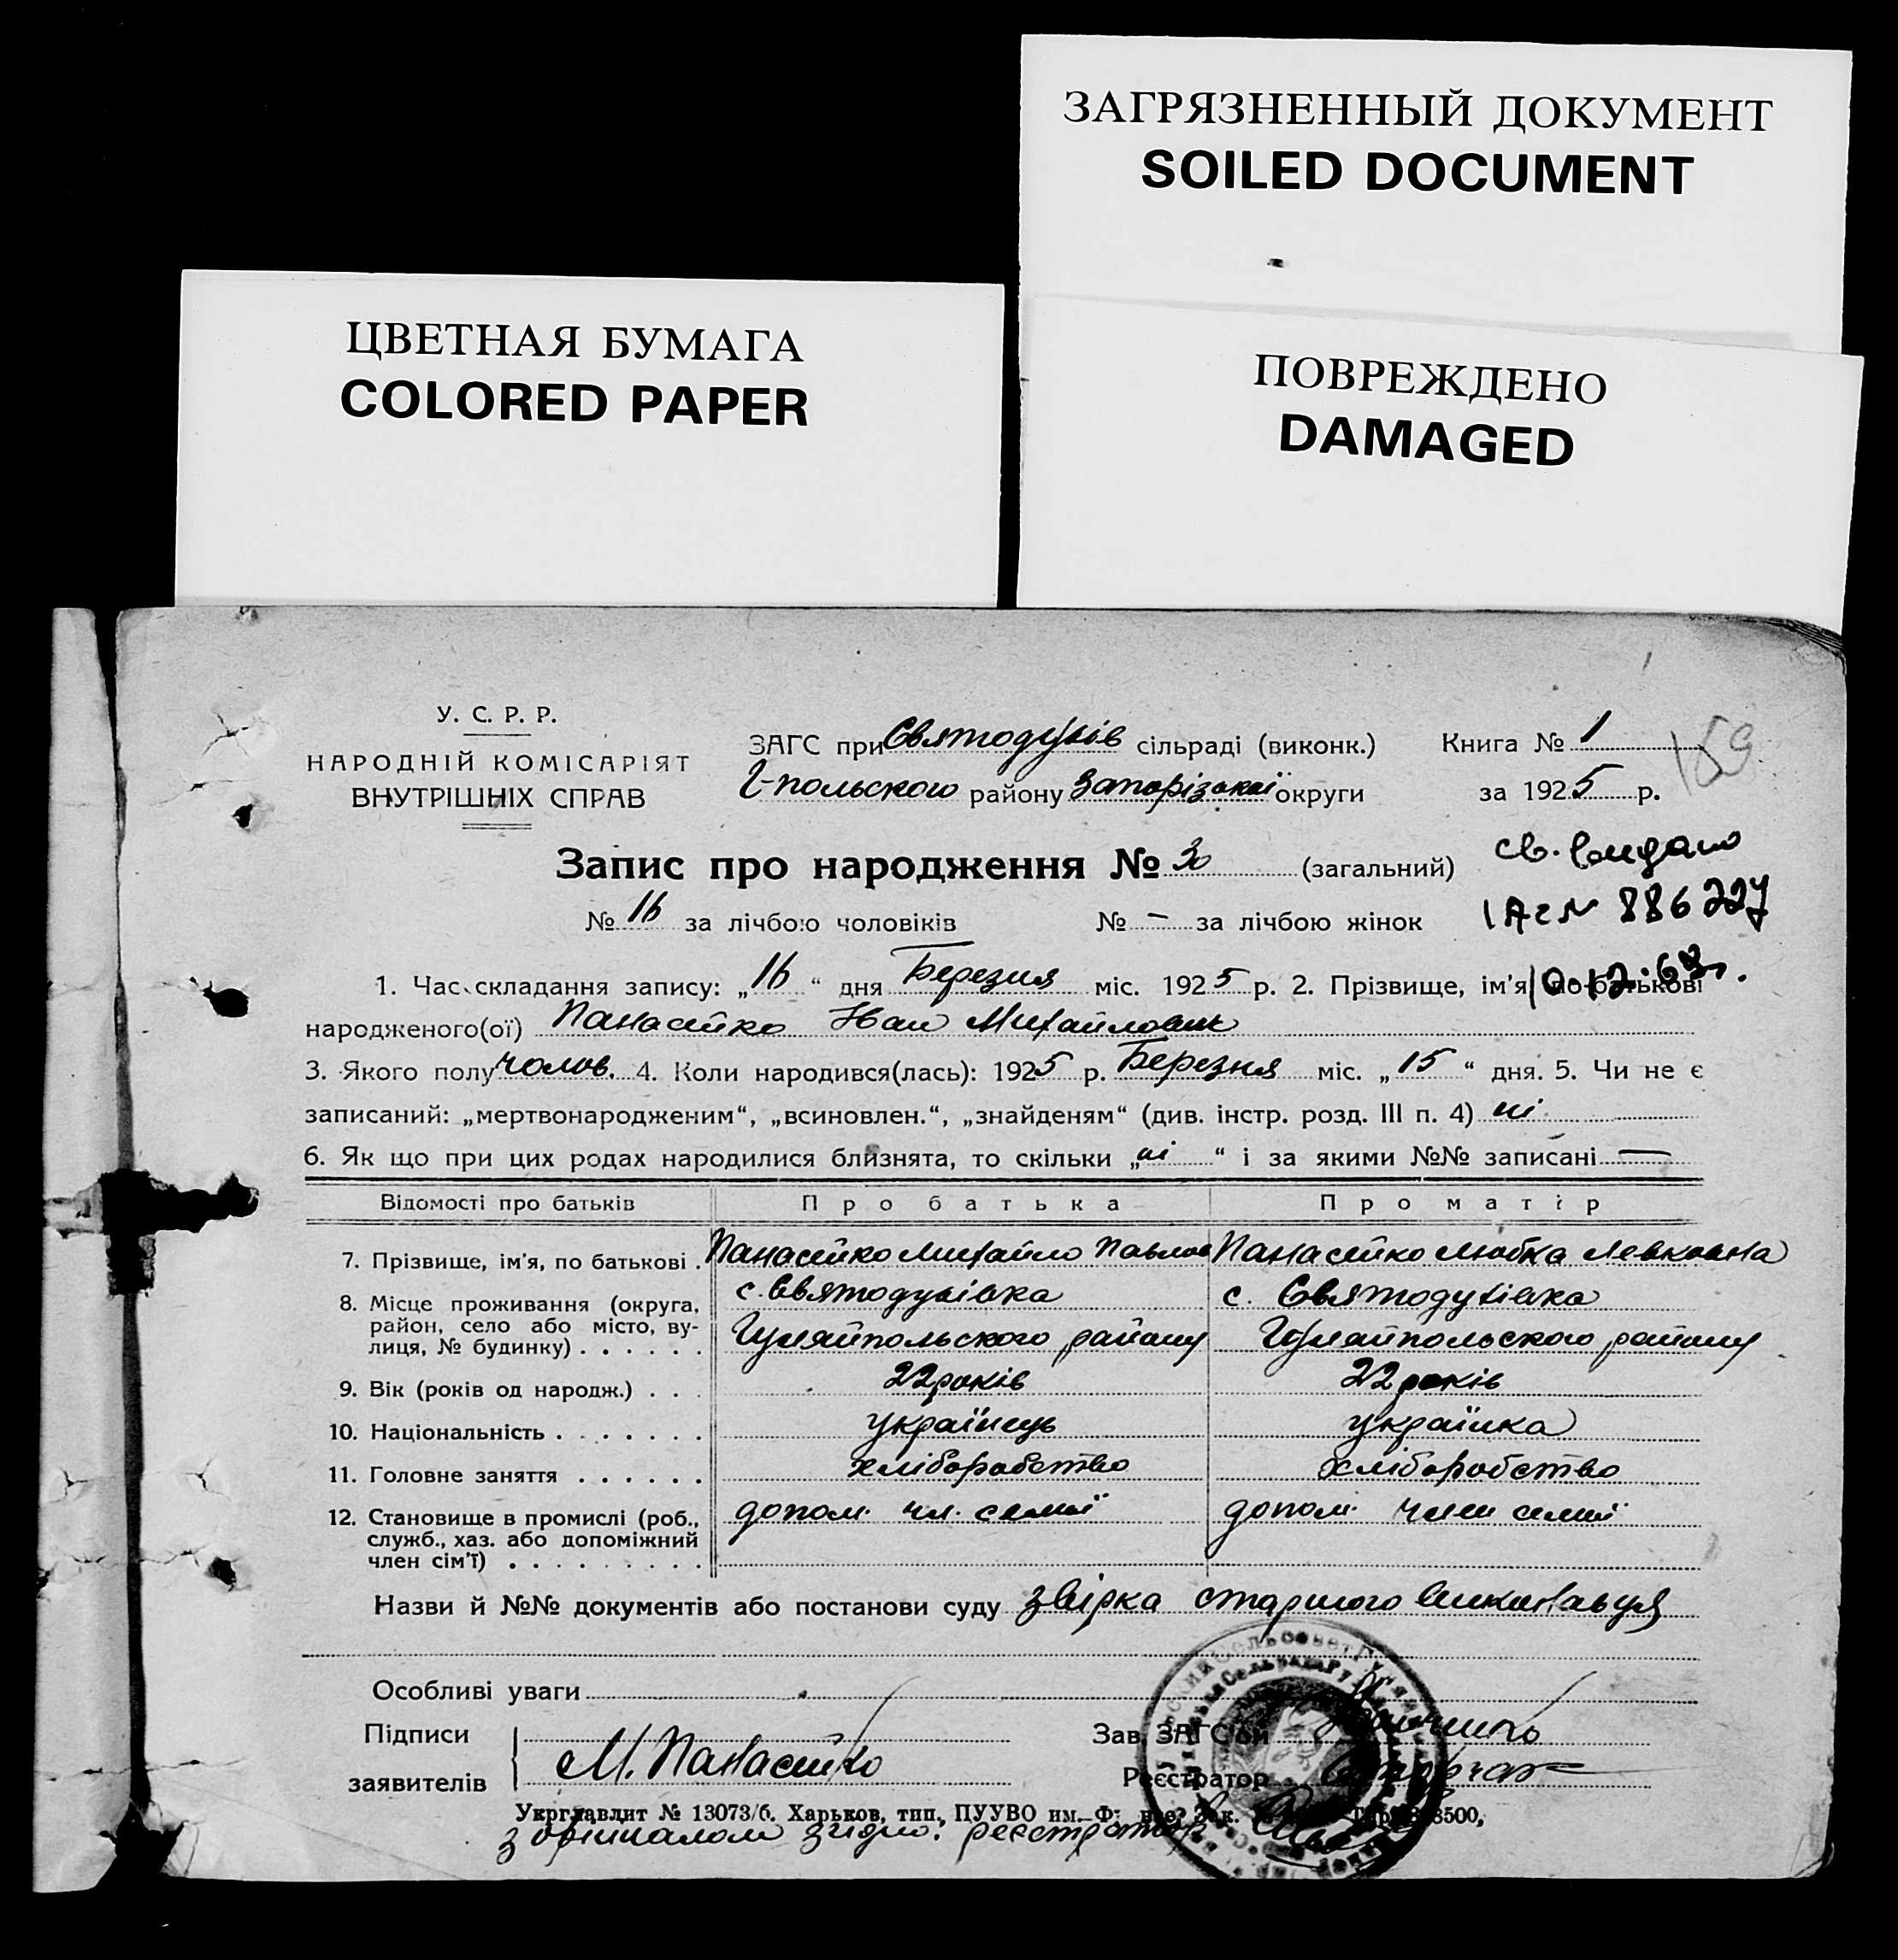 ЗАГРЯЗНЕННЫЙ ДОКУМЕНТ
SOILED DOCUMENT
ЦВЕТНАЯ БУМАГА
COLORED PAPER
ПОВРЕЖДЕНО
DAMAGED
У. С. Р. Р.
НАРОДНІЙ КОМІСАРІЯТ
ВНУТРІШНІХ СПРАВ
ЗАГС при Святодухів сільраді (виконк.) Книга № 1
Г-польского району Запорізької округи за 1925 р.
159
Запис про народження № 30 (загальний)
№ 16 за лічбою чоловіків № – за лічбою жінок
св. видано
886227
10.12.63г.
1. Час складання запису: „16“ дня Березня міс. 1925 р. 2. Прізвище, ім'я по-батькові
народженого(ої) Панасейко Иван Михайлович
3. Якого полу чолов. 4. Коли народився(лась): 1925 р. Березня міс. „15“ дня. 5. Чи не є
записаний: „мертвонародженим“, „всиновлен.“, „знайденям“ (див. інстр. розд. III п. 4) ні
6. Як що при цих родах народилися близнята, то скільки „ні“ і за якими №№ записані —
Відомості про батьків Про батька Про матір
7. Прізвище, ім'я, по батькові . Панасейко Михайло Павлов Панасейко Любка Левковна
8. Місце проживання (округа, район, село або місто, вулиця, № будинку) . . . . . . с. Святодухівка Гуляйпольского району с. Святодухівка Гуляйпольского району
9. Вік (років од народж.) . . . 22 років 22 років
10. Національність . . . . . . . українець українка
11. Головне заняття . . . . . . хліборобство хліборобство
12. Становище в промислі (роб., служб., хаз. або допоміжний член сім'ї) . . . . . . . . . допом. чл. семьї допом. член семьї
Назви й №№ документів або постанови суду звірка старшого виконавця
Особливі уваги
Підписи заявителів М. Панасейко
Зав. ЗАГСом
Реєстратор
Укрглавлит № 13073/б. Харьков, тип. ПУУВО им. Ф.
з оригіналом згідно: реєстратор